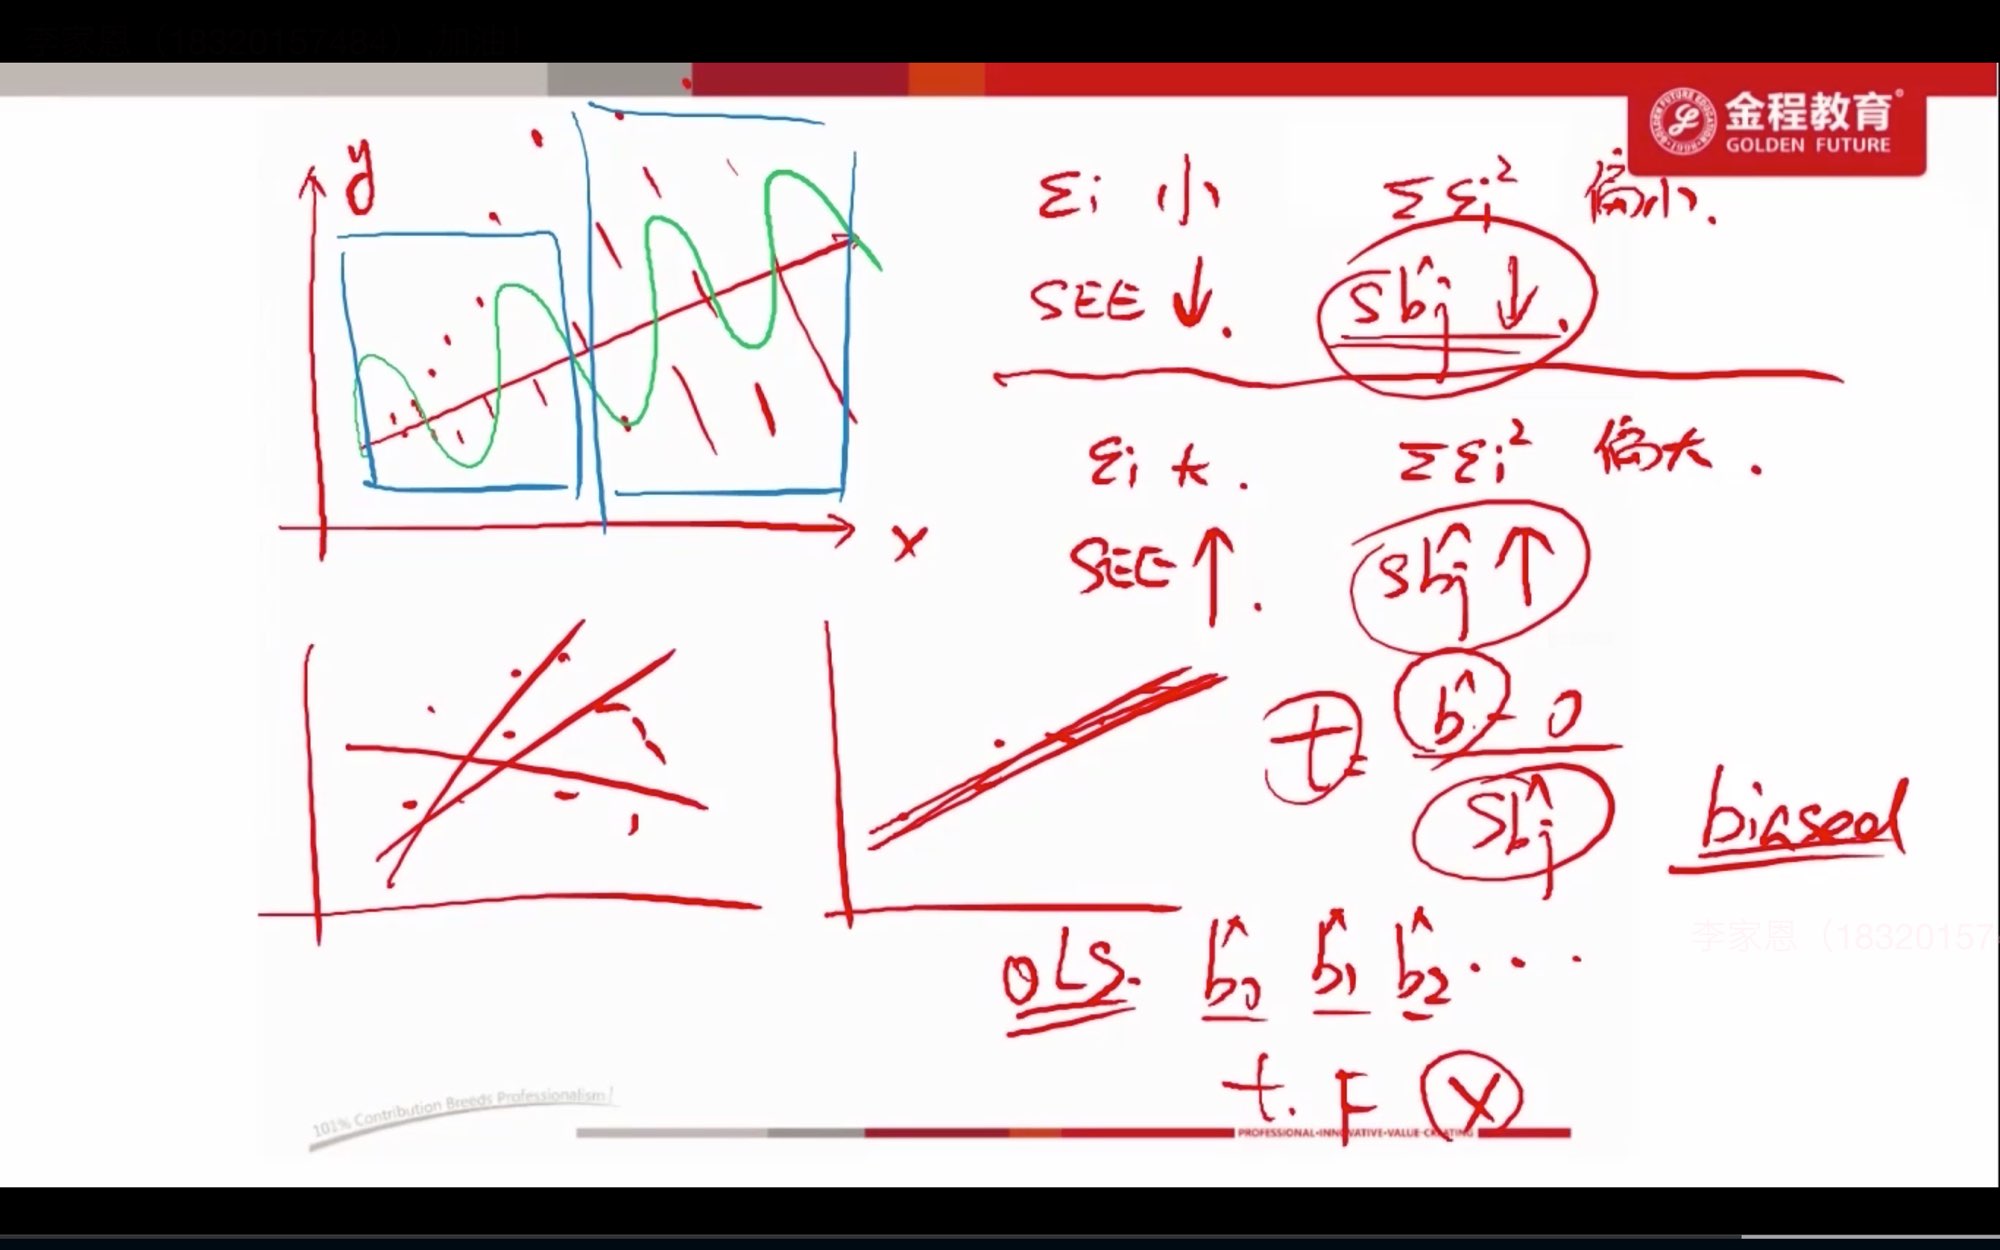 李家恩（18320157484）,加油！
金程教育
GOLDEN FUTURE
y
x
εi 小 Σεi² 偏小.
SEE ↓. Sb̂j ↓.
εi 大. Σεi² 偏大.
SEE ↑. Sb̂j ↑
t = b̂ - 0
Sb̂j
biased
李家恩（18320157
OLS. b̂0 b̂1 b̂2 ...
t. F X
101% Contribution Breeds Professionalism!
PROFESSIONAL•INNOVATIVE•VALUE-CREATING